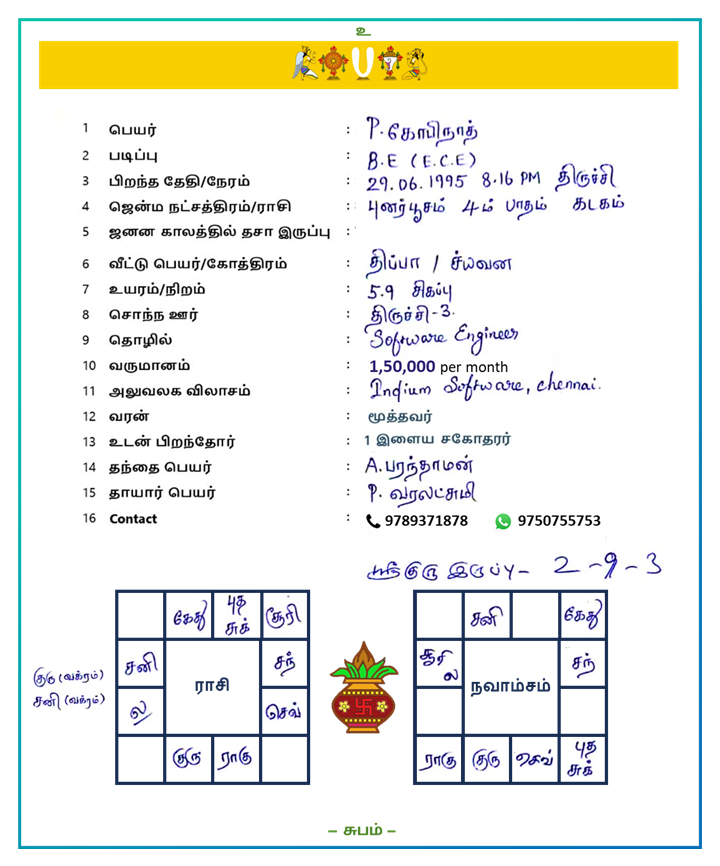 உ
1 பெயர் : P. கோபிநாத்
2 படிப்பு : B.E (E.C.E)
3 பிறந்த தேதி/நேரம் : 29.06.1995 8.16 PM திருச்சி
4 ஜென்ம நட்சத்திரம்/ராசி : புனர்பூசம் 4ம் பாதம் கடகம்
5 ஜனன காலத்தில் தசா இருப்பு :
6 வீட்டு பெயர்/கோத்திரம் : திப்பா / ச்யவன
7 உயரம்/நிறம் : 5.9 சிகப்பு
8 சொந்ந ஊர் : திருச்சி-3.
9 தொழில் : Software Engineer
10 வருமானம் : 1,50,000 per month
11 அலுவலக விலாசம் : Indium Software, chennai.
12 வரன் : மூத்தவர்
13 உடன் பிறந்தோர் : 1 இளைய சகோதரர்
14 தந்தை பெயர் : A. பரந்தாமன்
15 தாயார் பெயர் : P. வரலட்சுமி
16 Contact : 9789371878 9750755753
ஸ்ரீ குரு இருப்பு - 2 - 9 - 3
கேது புத சூரி
சுக்
சனி சந்
குரு (வக்ரம்)
சனி (வக்ரம்)
ராசி
ல செவ்
குரு ராகு
சனி கேது
சூரி சந்
ல
நவாம்சம்
ராகு குரு செவ் புத
சுக்
– சுபம் –